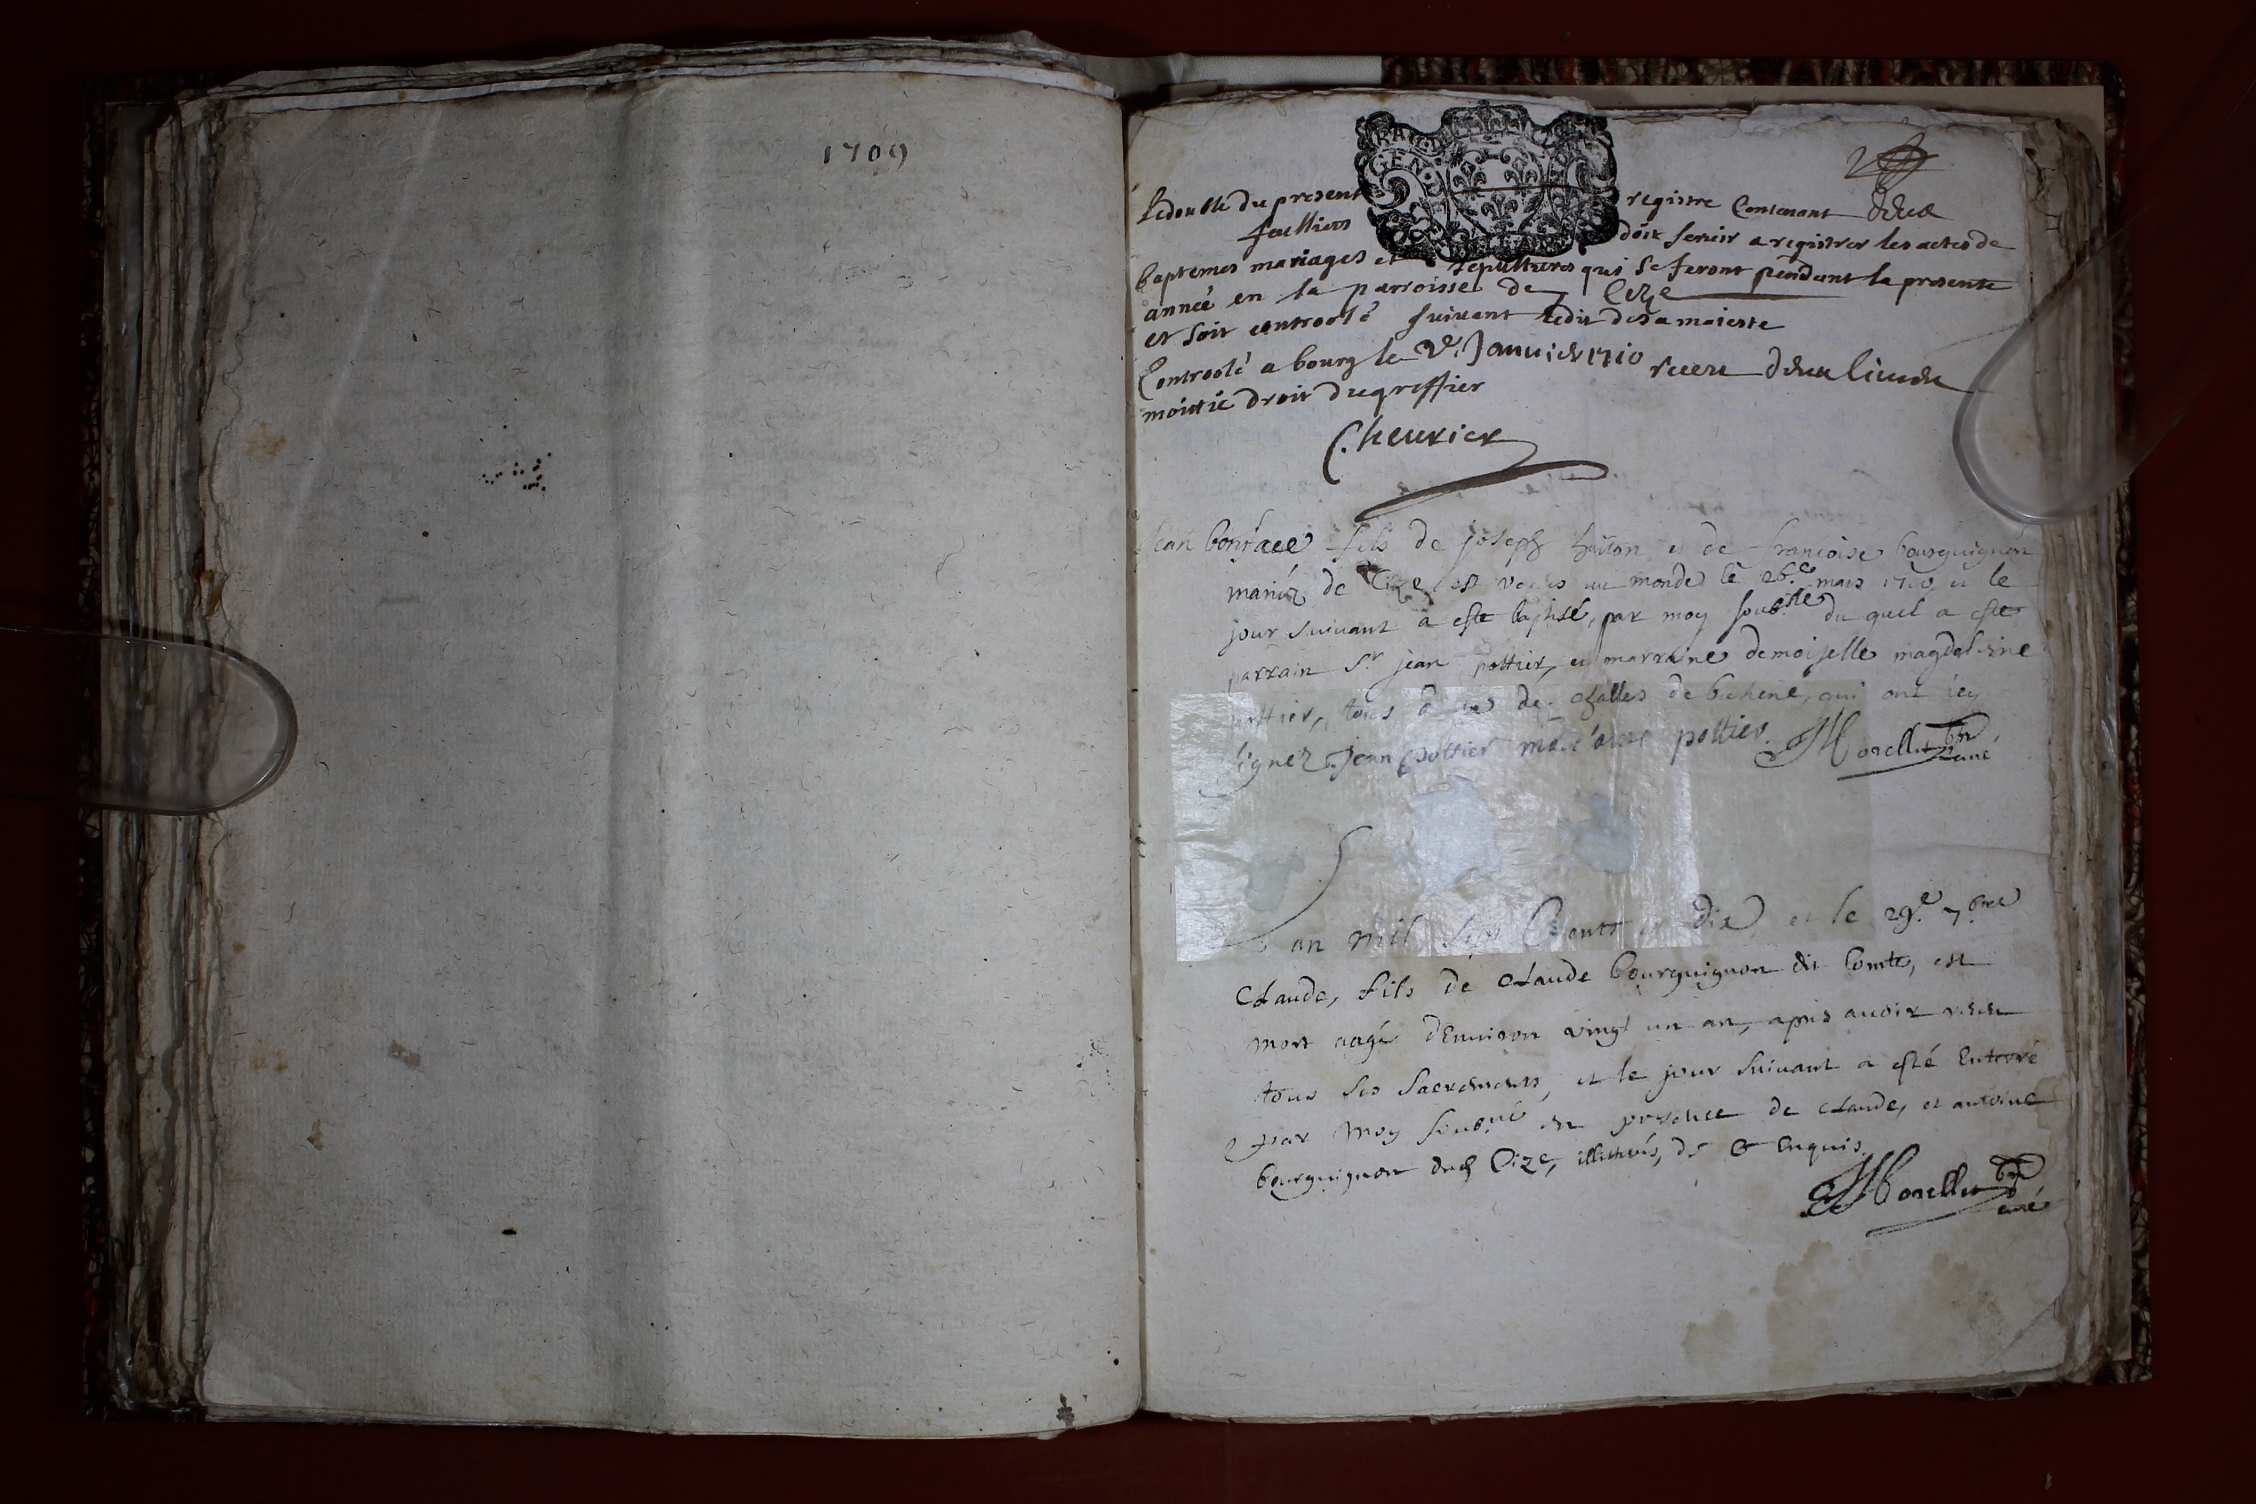 1709
2
Ledouble du present registre Contenant deux
feulliers doit servir a registrer les actes de
baptemes mariages et sepultures qui se feront pendant la presente
année en la parroisse de Cize
et soit controolé suivant ledit desa majeste
Controolé a bourg le 2e. Janvier 1710 receu deux livres
moittié droit du greffier
Cheurier
Jean boniface fils de joseph et de francoise bourguignon
mariéz de Cize est venus au monde le 26.e mars 1710 et le
jour suivant a esté baptisé, par moy soubné du quel a esté
parrain Sr jean pottier, et marraine demoiselle magdeleine
pottier, tous de challes de bohene, qui ont icy
signéz Jean pottier pottier. Morellet curé
L'an mil sept Cents et dix et le 29.e 7bre
Claude, fils de Claude bourguignon dit Comte, est
mort aagé d'Environ vingt un an, apres avoir receu
tous ses sacrements, et le jour suivant a esté Enterré
par moy soubné en presence de claude, et antoine
bourguignon dud Cize, illitterés, de Enquis.
Morellet curé